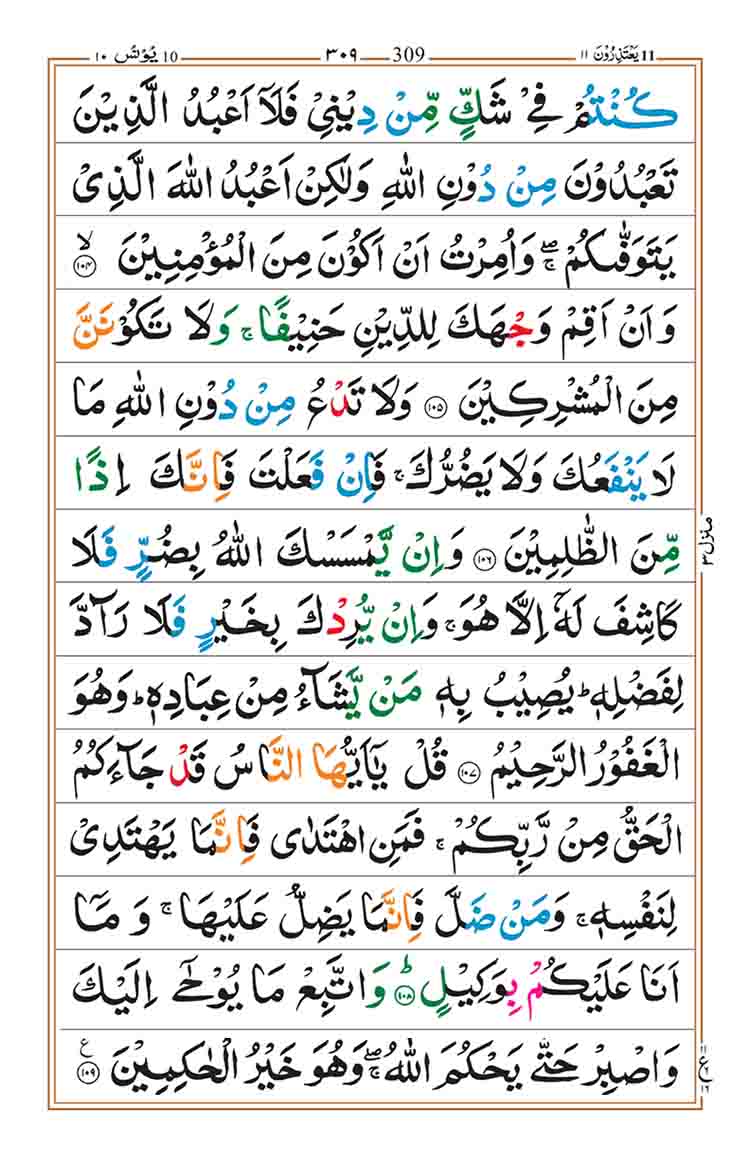 11 یَعْتَذِرُوْنَ ۱۱ 309 ۳۰۹ 10 یُوْنُسَ ۱۰
كُنْتُمْ فِیْ شَكٍّ مِّنْ دِیْنِیْ فَلَاۤ اَعْبُدُ الَّذِیْنَ
تَعْبُدُوْنَ مِنْ دُوْنِ اللّٰهِ وَلٰكِنْ اَعْبُدُ اللّٰهَ الَّذِیْ
یَتَوَفّٰىكُمْ ۖۚ وَاُمِرْتُ اَنْ اَكُوْنَ مِنَ الْمُؤْمِنِیْنَ ۙ‏﴿۱۰۴﴾
وَاَنْ اَقِمْ وَجْهَكَ لِلدِّیْنِ حَنِیْفًا ۚ وَلَا تَكُوْنَنَّ
مِنَ الْمُشْرِكِیْنَ ﴿۱۰۵﴾ وَلَا تَدْعُ مِنْ دُوْنِ اللّٰهِ مَا
لَا یَنْفَعُكَ وَلَا یَضُرُّكَ ۚ فَاِنْ فَعَلْتَ فَاِنَّكَ اِذًا
مِّنَ الظّٰلِمِیْنَ ﴿۱۰۶﴾ وَاِنْ یَّمْسَسْكَ اللّٰهُ بِضُرٍّ فَلَا
كَاشِفَ لَهٗۤ اِلَّا هُوَ ۚ وَاِنْ یُّرِدْكَ بِخَیْرٍ فَلَا رَآدَّ
لِفَضْلِهٖ ؕ یُصِیْبُ بِهٖ مَنْ یَّشَآءُ مِنْ عِبَادِهٖ ؕ وَهُوَ
الْغَفُوْرُ الرَّحِیْمُ ﴿۱۰۷﴾ قُلْ یٰۤاَیُّهَا النَّاسُ قَدْ جَآءَكُمُ
الْحَقُّ مِنْ رَّبِّكُمْ ۚ فَمَنِ اهْتَدٰى فَاِنَّمَا یَهْتَدِیْ
لِنَفْسِهٖ ۚ وَمَنْ ضَلَّ فَاِنَّمَا یَضِلُّ عَلَیْهَا ۚ وَمَاۤ
اَنَا عَلَیْكُمْ بِوَكِیْلٍ ؕ‏﴿۱۰۸﴾ وَاتَّبِعْ مَا یُوْحٰۤى اِلَیْكَ
وَاصْبِرْ حَتّٰى یَحْكُمَ اللّٰهُ ۖۚ وَهُوَ خَیْرُ الْحٰكِمِیْنَ ﴿۱۰۹﴾ ع
منزل ۳
ع